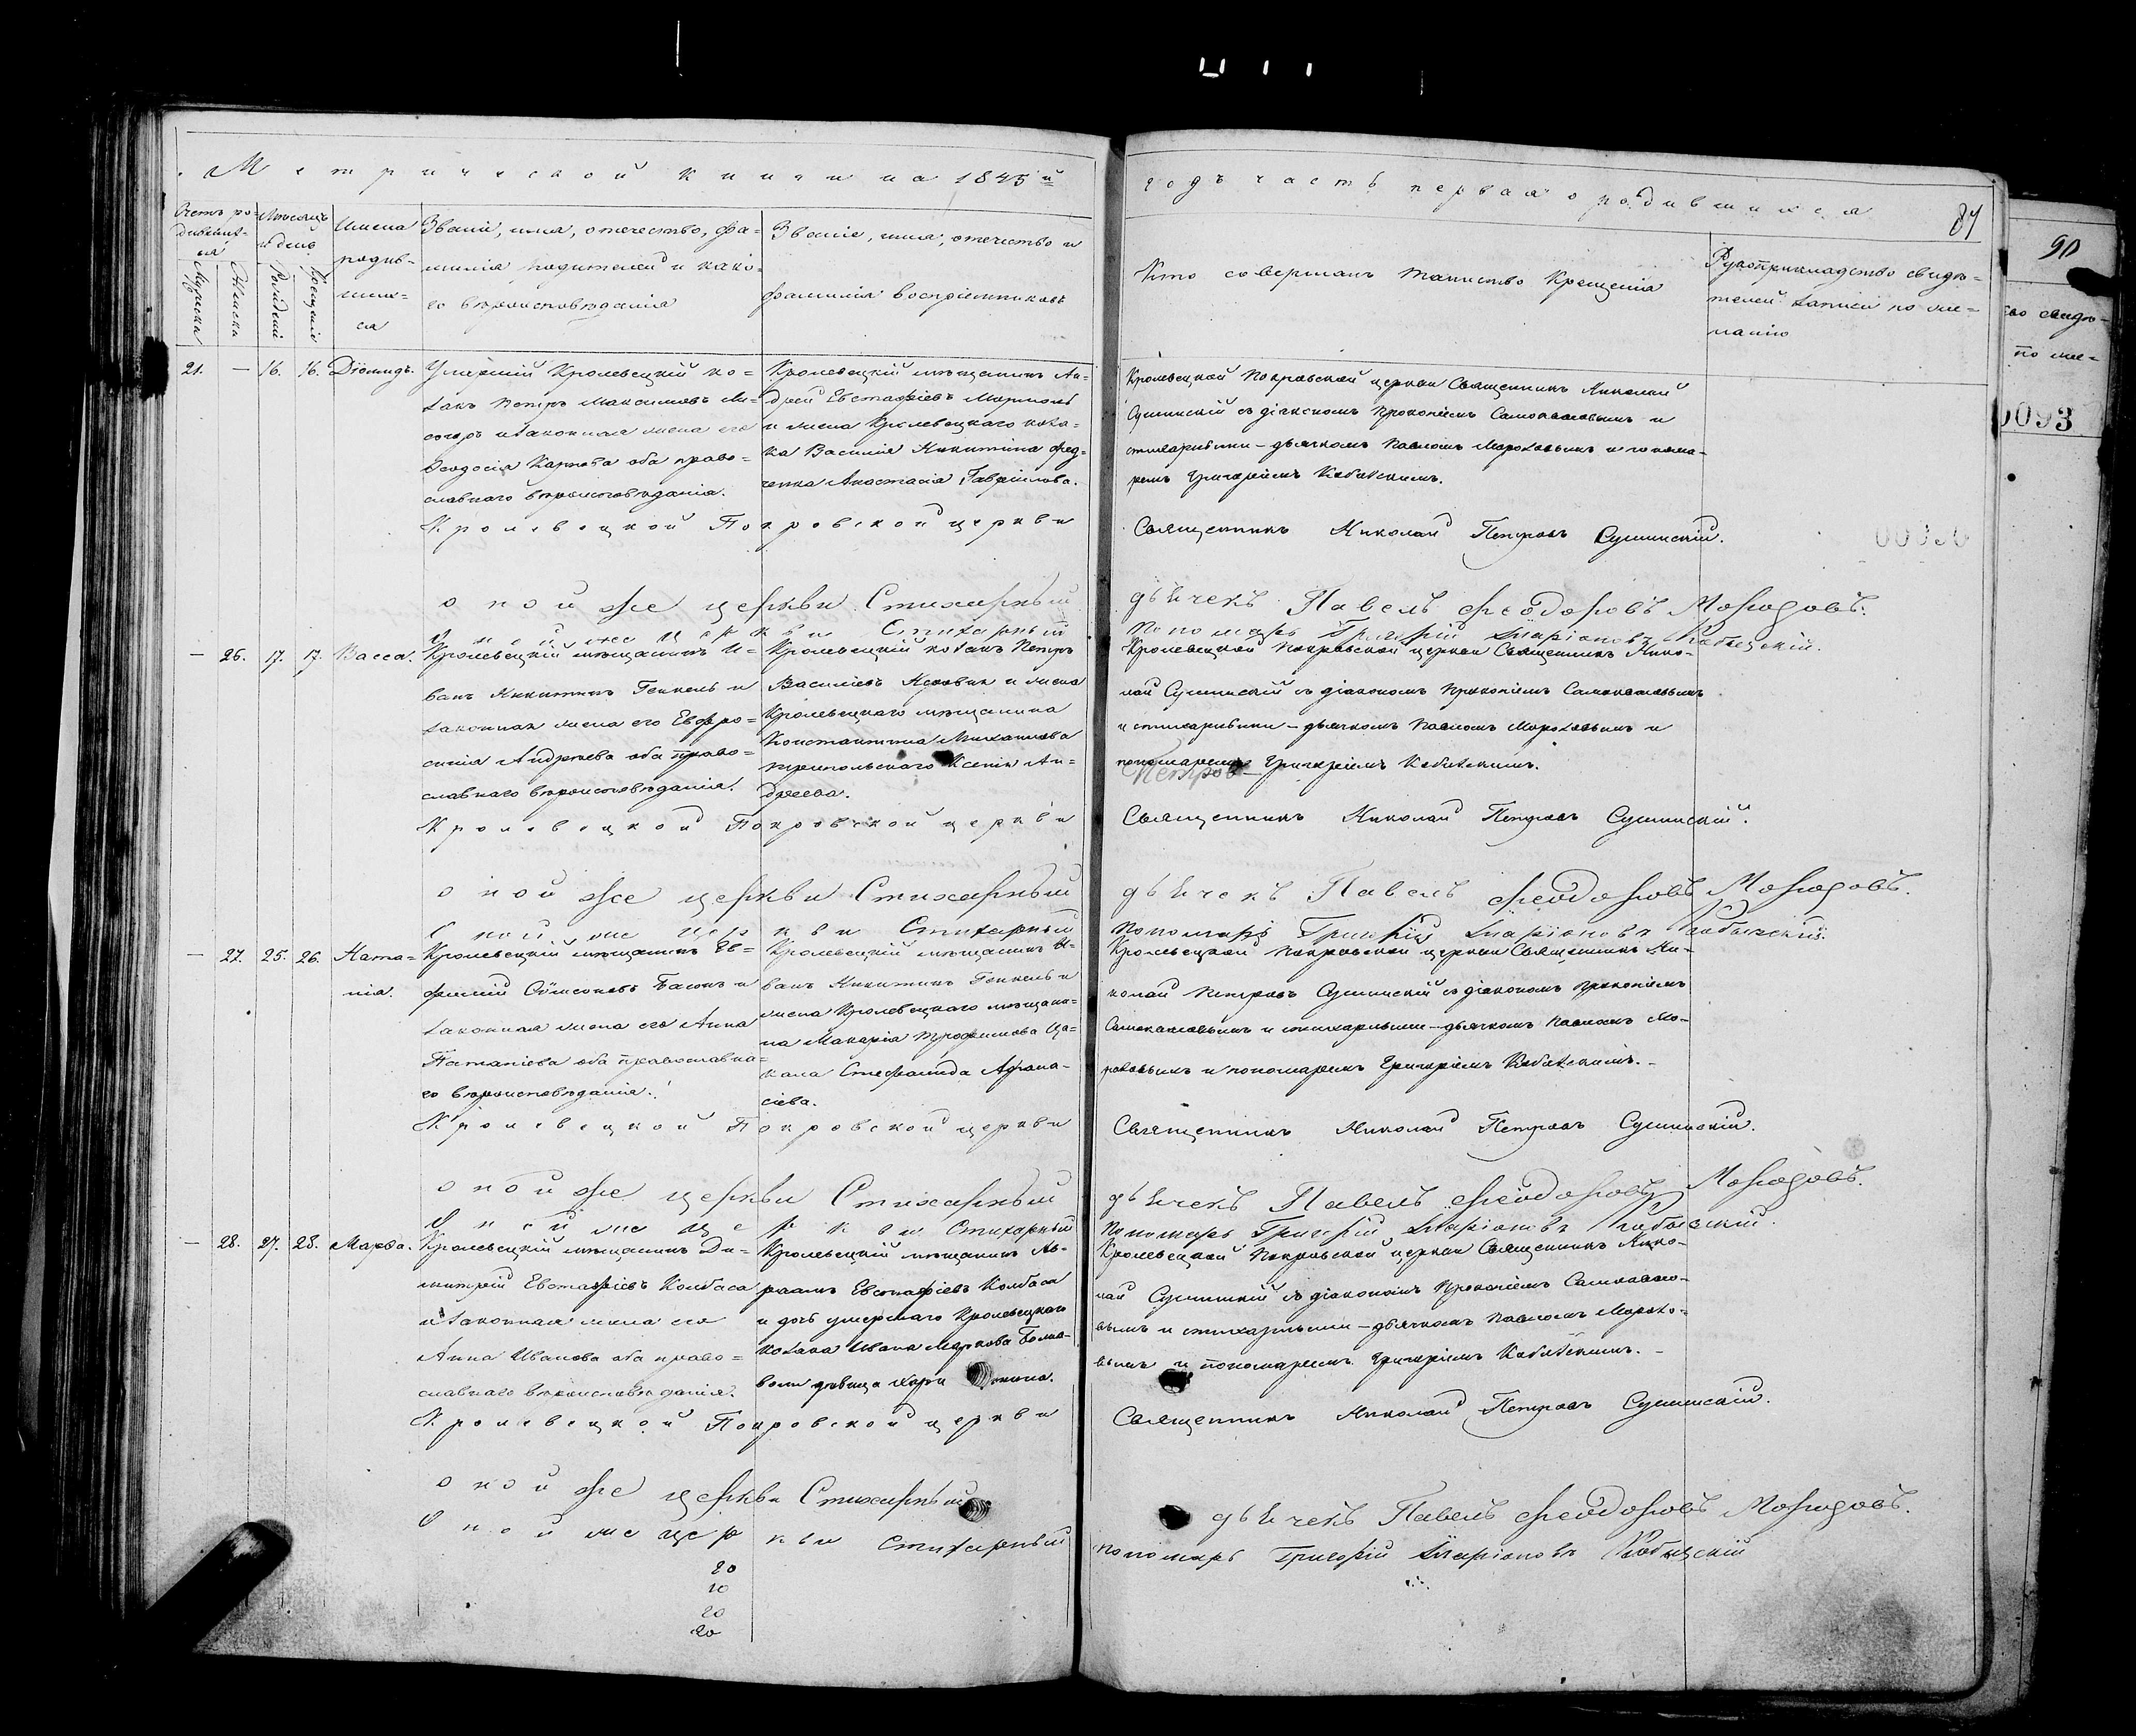 Метрической книги на 1845й
годъ часть первая о родившихся
89
Счетъ ро-
дившихъ-
ся
Мужеска
Женска
Мѣсяцъ
и день
Рожденія
Крещенія
Имена
родив-
ших-
ся
Званіе, имя, отечество, фа-
милія родителей и како-
го вѣроисповѣданія
Званіе, имя, отечество и
фамилія воспріемниковъ
Кто совершалъ таинство крещенія
Рукоприкладство свидѣ-
телей записи по же-
ланію
21. — 16. 16. Діомидъ.
Умершій Кролевецкій ко-
закъ Петръ Максимовъ
и законная жена его
Феодосія Карпова оба право-
славнаго вѣроисповѣданія.
Кролевецкій мѣщанинъ Ан-
дрей Евстафіевъ
и жена Кролевецкаго коза-
ка Василія Никитина Фед-
ченка Анастасія Гаврилова.
Кролевецкой Покровской церкви Священникъ Николай
Сушинскій съ діакономъ Прокопіемъ Самокаловымъ и
стихарными — дьячкомъ Павломъ Морозовымъ и понома-
ремъ Григоріемъ
Кролевецкой Покровской церкви Священникъ Николай Петровъ Сушинскій.
оной же церкви Стихарный дьячекъ Павелъ Феодоровъ Морозовъ.
Оной же церкви Стихарный Пономарь Григорій Иларіоновъ
— 26. 17. 17. Васса.
Кролевецкій мѣщанинъ И-
ванъ Никитинъ Генкель и
законная жена его Евфро-
синія Андреева оба право-
славнаго вѣроисповѣданія.
Кролевецкій козакъ Петръ
Василіевъ и жена
Кролевецкаго мѣщанина
Константина Михаилова
Ксенія Ан-
дреева.
Кролевецкой Покровской церкви Священникъ Нико-
лай Сушинскій съ діакономъ Прокопіемъ Самокаловымъ
и стихарными — дьячкомъ Павломъ Морозовымъ и
пономаремъ Григоріемъ
Петров
Кролевецкой Покровской церкви Священникъ Николай Петровъ Сушинскій.
оной же церкви Стихарный дьячекъ Павелъ Феодоровъ Морозовъ.
Оной же церкви Стихарный Пономарь Григорій Иларіоновъ
— 27. 25. 26. Ната-
лія.
Кролевецкій мѣщанинъ Ев-
фимій и
законная жена его Анна
оба православна-
го вѣроисповѣданія.
Кролевецкій мѣщанинъ И-
ванъ Никитинъ Генкель и
жена Кролевецкаго мѣщани-
на Макарія Трофимова Ца-
кала Стефанида Афана-
сіева.
Кролевецкой Покровской церкви Священникъ Ни-
колай Петровъ Сушинскій съ діакономъ Прокопіемъ
Самокаловымъ и стихарными — дьячкомъ Павломъ Мо-
розовымъ и пономаремъ Григоріемъ
Кролевецкой Покровской церкви Священникъ Николай Петровъ Сушинскій.
оной же церкви Стихарный дьячекъ Павелъ Феодоровъ Морозовъ.
Оной же церкви Стихарный Пономарь Григорій Иларіоновъ
— 28. 27. 28. Марфа.
Кролевецкій мѣщанинъ Ди-
митрій Евстафіевъ Колбаса
и законная жена его
Анна Иванова оба право-
славнаго вѣроисповѣданія.
Кролевецкій мѣщанинъ Ав-
раамъ Евстафіевъ Колбаса
и дочь умершаго Кролевецкаго
козака Ивана Маркова
дѣвица
Кролевецкой Покровской церкви Священникъ Нико-
лай Сушинскій съ діакономъ Прокопіемъ Самокало-
вымъ и стихарными — дьячкомъ Павломъ Морозо-
вымъ и пономаремъ Григоріемъ
Кролевецкой Покровской церкви Священникъ Николай Петровъ Сушинскій.
оной же церкви Стихарный дьячекъ Павелъ Феодоровъ Морозовъ.
Оной же церкви Стихарный Пономарь Григорій Иларіоновъ
20
10
20
20
90
свидѣ-
по же-
0093